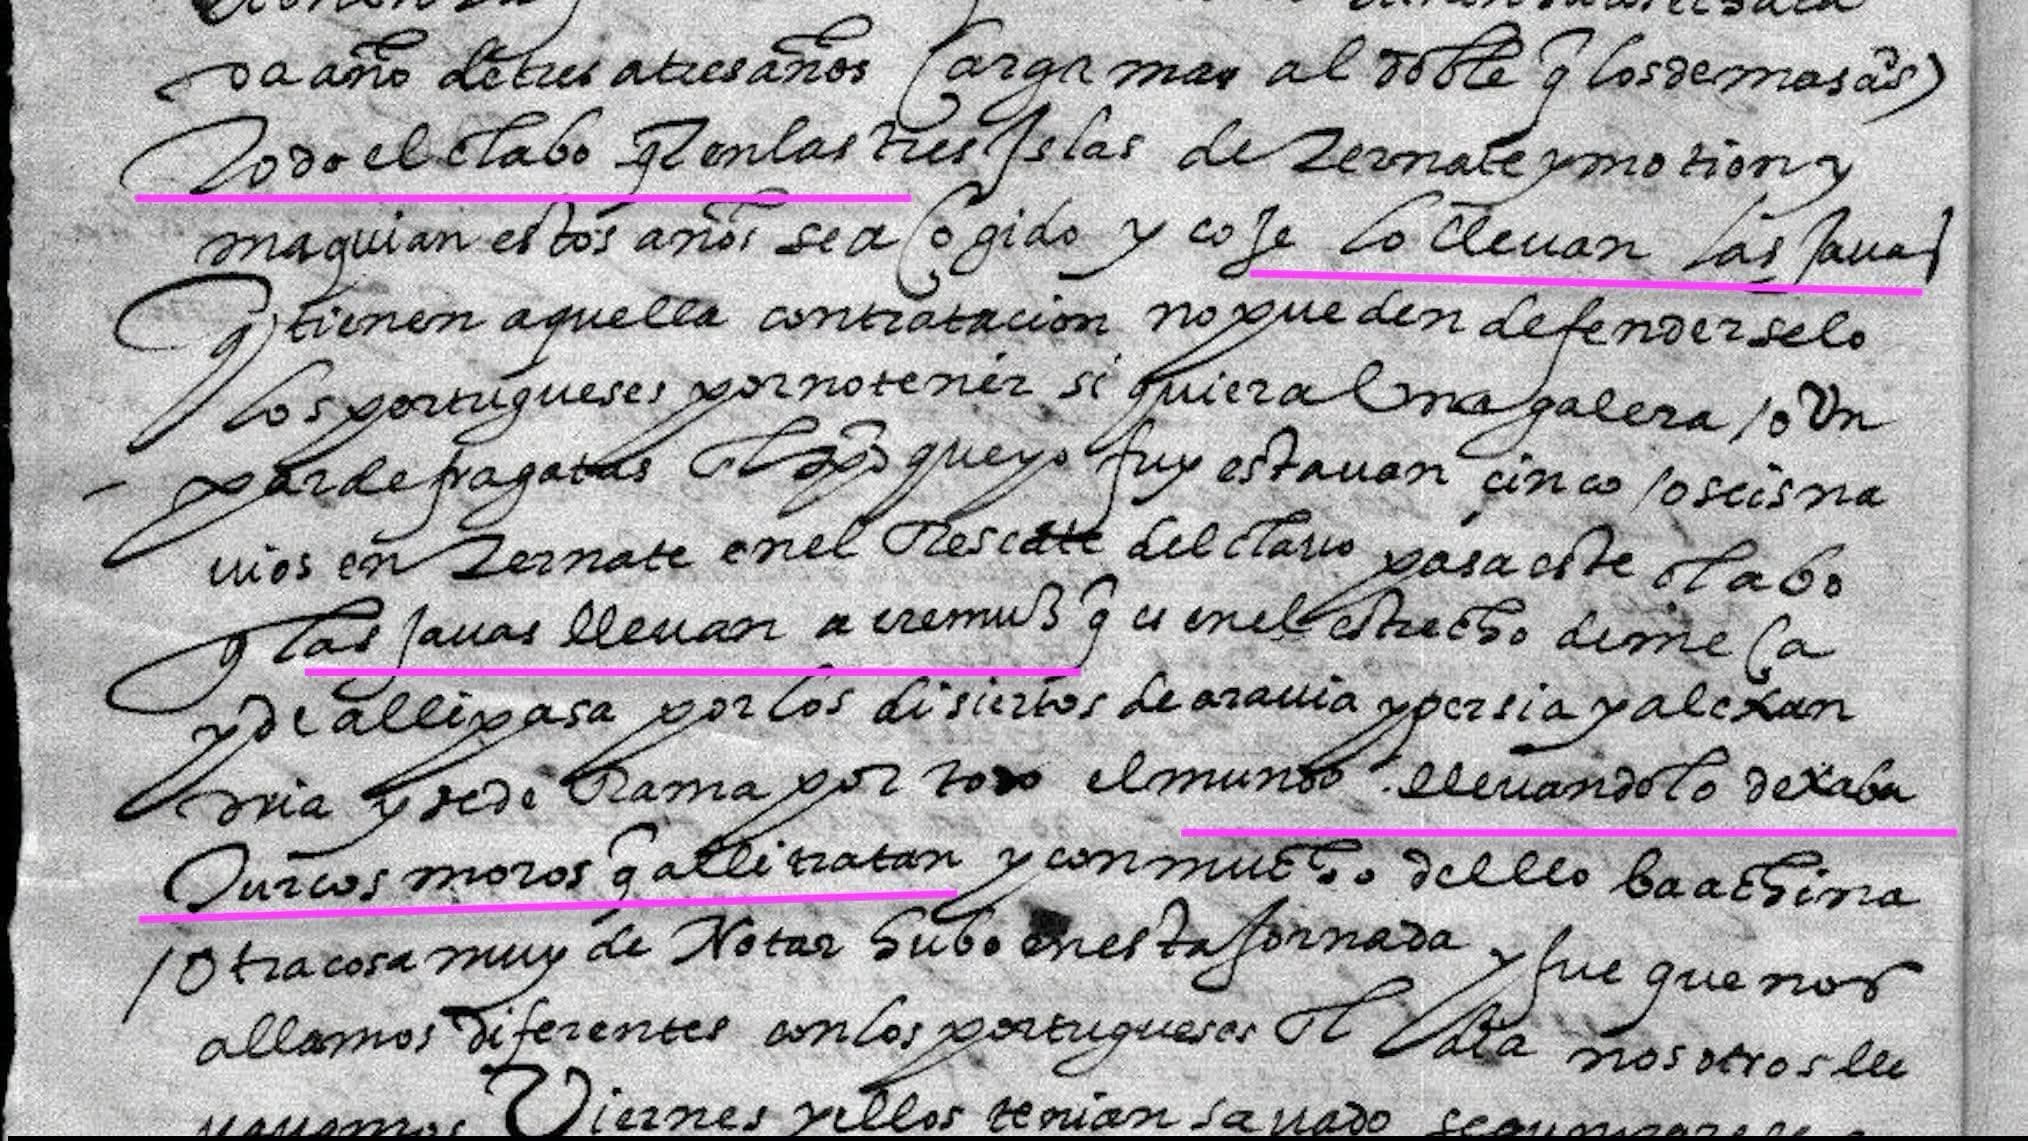 da año de tres a tres años carga mas al doble q los demas as)
Todo el clabo q en las tres Islas de Ternate y motion y
maquian estos años se a cogido y coje lo lleuan las Jauas
q tienen aquella contratacion no pueden defenderselo
los portugueses por no tener si quiera Una galera /o Un
par de fragatas El año que yo fuy estauan cinco /o seis na
uios en Ternate en el Rescate del clauo pasa este clabo
q las Jauas lleuan a eremuz q es en el estrecho de me ca
y de alli pasa por los disiertos de arauia y persia y alexan
dria y se de Rama por todo el mundo lleuandolo de xaba
Turcos moros q alli tratan y con mucho dello ba a china
/Otra cosa muy de Notar hubo en esta Jornada y fue que nos
allamos diferentes con los portugueses El dia nosotros lle
uauamos Viernes y ellos tenian sauado